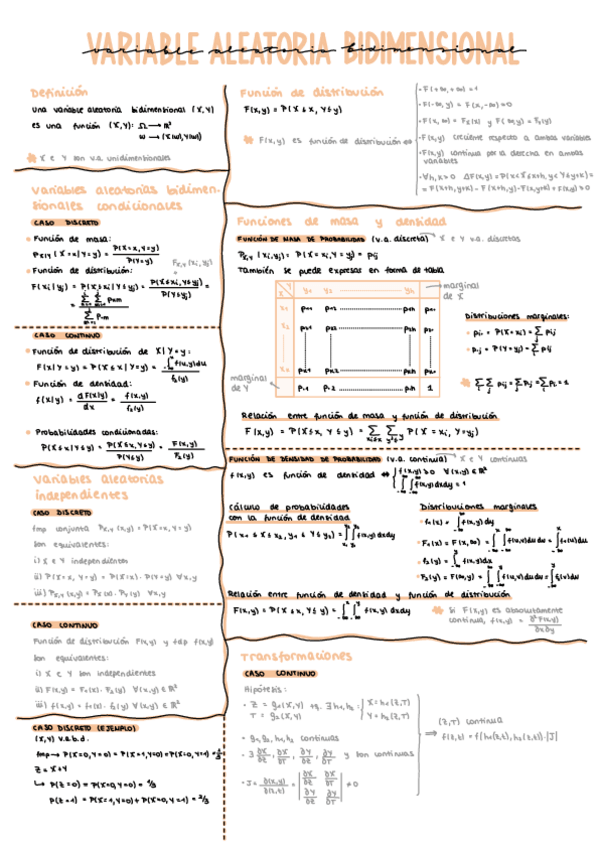 VARIABLE ALEATORIA BIDIMENSIONAL
variable aleatoria bidimensional
Definición
una variable aleatoria bidimensional (X,Y)
es una función (X,Y): Ω → ℝ²
w → (X(w),Y(w))
X e Y son v.a. unidimensionales
Variables aleatorias bidimen-
sionales condicionales
CASO DISCRETO
Función de masa:
P(X=x,Y=y)
P(Y=y)
Función de distribución:
CASO CONTINUO
Función de distribución de X|Y=y:
F(x|Y=y) = P(X≤x|Y=y) =
Función de densidad:
f(x|y) = dF(x|y)/dx = f(x,y)/f₂(y)
Probabilidades condicionadas:
P(X≤x|Y≤y) = P(X≤x,Y≤y)/P(Y≤y) = F(x,y)/F₂(y)
Variables aleatorias
independientes
CASO DISCRETO
fmp conjunta Px,y (x,y) = P(X=x, Y=y)
Son equivalentes:
i) X e Y independientes
ii) P(X=x, Y=y) = P(X=x) · P(Y=y) ∀x,y
iii) Px,y (x,y) = Px (x) · Py (y) ∀x,y
CASO CONTINUO
Función de distribución F(x,y) y fdp f(x,y)
Son equivalentes:
i) X e Y son independientes
ii) F(x,y) = F₁(x) · F₂(y) ∀(x,y) ∈ ℝ²
iii) f(x,y) = f₁(x) · f₂(y) ∀(x,y) ∈ ℝ²
CASO DISCRETO (EJEMPLO)
(X,Y) v.a.b.d.
fmp → P(X=0,Y=0) = P(X=1,Y=0) = P(X=0,Y=1) = 1/3
Z = X+Y
↳ P(Z=0) = P(X=0,Y=0) = 1/3
P(Z=1) = P(X=1,Y=0) + P(X=0,Y=1) = 2/3
Función de distribución
F(x,y) = P(X≤x, Y≤y)
F(x,y) es función de distribución ⇔
· F(+∞,+∞) = 1
· F(-∞,y) = F(x,-∞) = 0
· F(x,∞) = F₁(x) y F(∞,y) = F₂(y)
· F(x,y) creciente respecto a ambas variables
· F(x,y) continua por la derecha en ambas
variables
Funciones de masa y densidad
FUNCIÓN DE MASA DE PROBABILIDAD (v.a. discreta) → X e Y v.a. discretas
Px,y (xi,yj) = P(X=xi, Y=yj) = pij
También se puede expresar en forma de tabla
marginal
de X
marginal
de Y
Distribuciones marginales:
· pi. = P(X=xi) = ∑ pij
· p.j = P(Y=yj) = ∑ pij
Relación entre función de masa y función de distribución
F(x,y) = P(X≤x, Y≤y) = ∑ ∑ P(X=xi, Y=yj)
FUNCIÓN DE DENSIDAD DE PROBABILIDAD (v.a. continua) → X e Y continuas
f(x,y) es función de densidad ⇔ { f(x,y) ≥ 0 ∀(x,y) ∈ ℝ²
∫∫ f(x,y) dxdy = 1
Cálculo de probabilidades
con la función de densidad
Distribuciones marginales
Relación entre función de densidad y función de distribución
F(x,y) = P(X≤x, Y≤y) = ∫∫ f(x,y) dxdy
Si F(x,y) es absolutamente
continua, f(x,y) = ∂²F(x,y)/∂x∂y
Transformaciones
CASO CONTINUO
Hipótesis:
· Z = g₁(X,Y) tq. ∃ h₁,h₂ : X = h₁(Z,T)
T = g₂(X,Y) Y = h₂(Z,T)
· g₁,g₂, h₁,h₂ continuas
· ∃ ∂X/∂Z, ∂X/∂T, ∂Y/∂Z, ∂Y/∂T y son continuas
· J = ∂(x,y)/∂(z,t) = | ∂X/∂Z ∂X/∂T ∂Y/∂Z ∂Y/∂T | ≠ 0
⇒ (Z,T) continua
f(z,t) = f(h₁(z,t), h₂(z,t)) · |J|